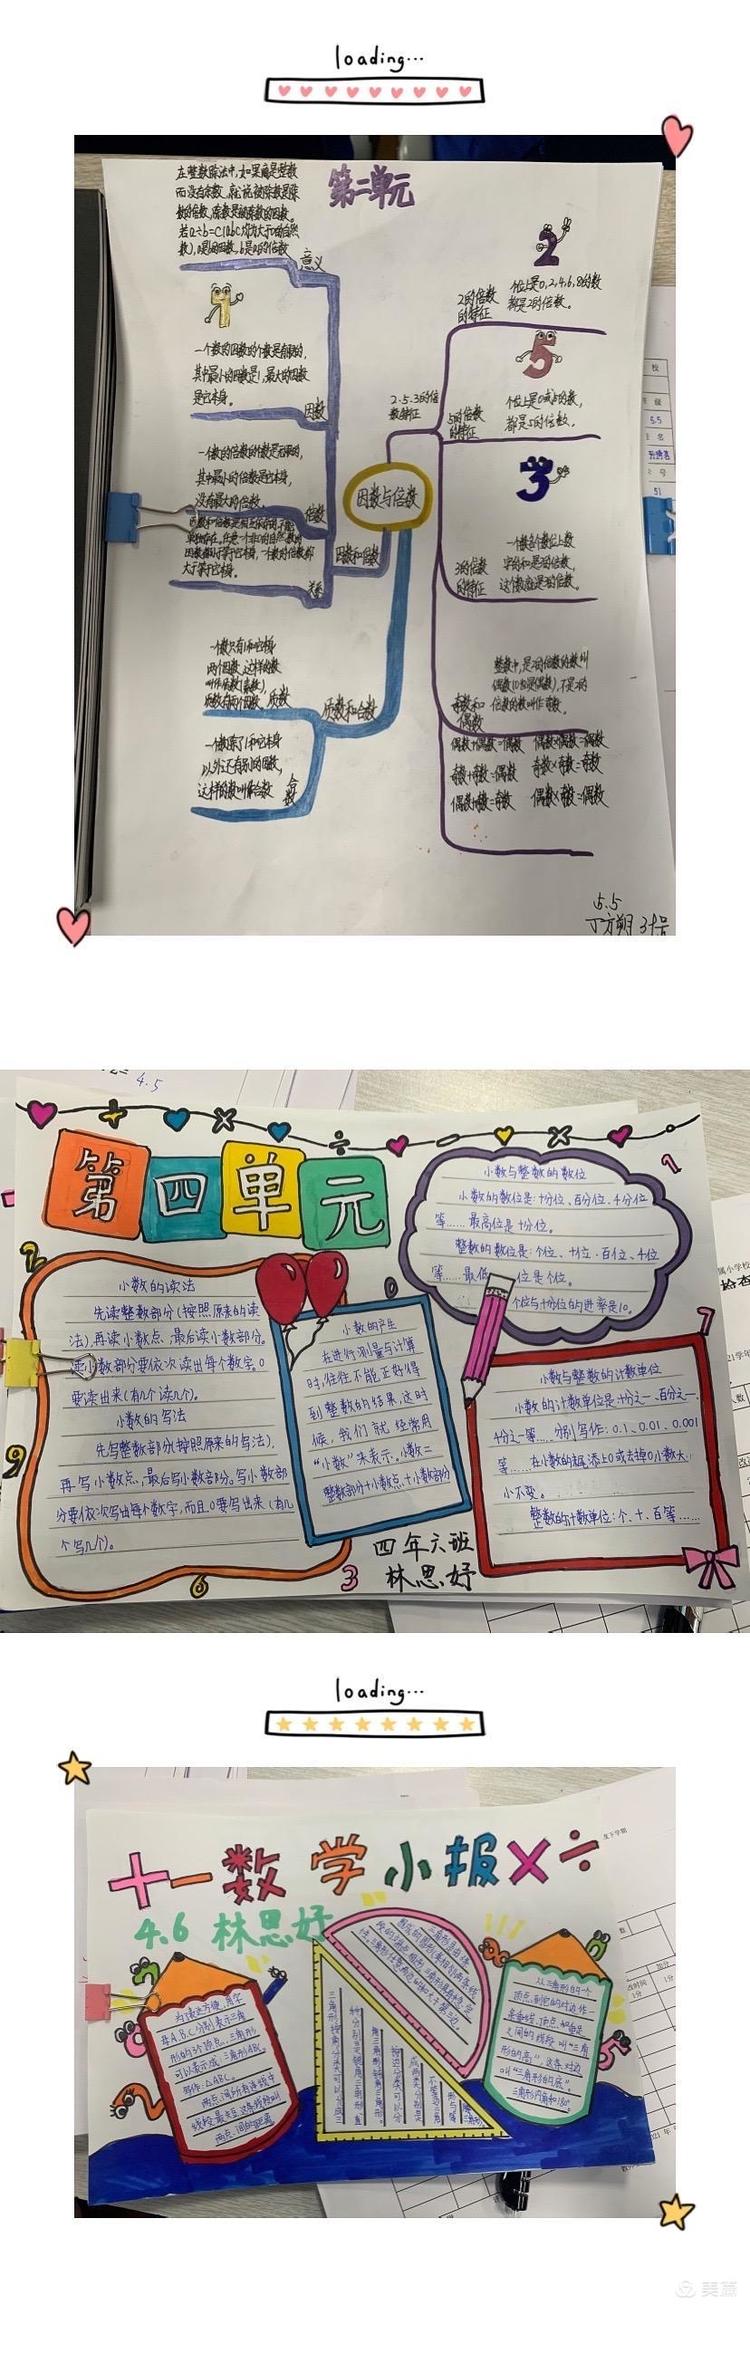 loading...
第二单元
在整数除法中,如果商是整数
而没有余数,就说被除数是除
数的倍数,除数是被除数的因数。
意义
一个数的因数的个数是有限的,
其中最小的因数是1,最大的因数
是它本身。
因数
一个数的倍数的个数是无限的,
其中最小的倍数是它本身,
没有最大的倍数。
倍数
大于等于它本身。
关系
因数和倍数
因数与倍数
2.5.3的倍
数特征
2
2的倍数
的特征
个位上是0,2,4,6,8的数
都是2的倍数。
5
5的倍数
的特征
个位上是0或5的数,
都是5的倍数。
3
3的倍数
的特征
一个数各个数位上数
字的和是3的倍数,
这个数就是3的倍数。
奇数和
偶数
整数中,是2的倍数的数叫
偶数(0也是偶数),不是2的
倍数的数叫作奇数。
偶数+偶数=偶数
奇数+奇数=偶数
奇数×奇数=奇数
偶数+奇数=奇数
偶数×奇数=偶数
质数和合数
一个数只有1和它本身
两个因数,这样的数
质数
一个数除了1和它本身
以外还有别的因数,
这样的数叫作合数
合数
5.5
丁方朔 34号
4.5
第四单元
小数的读法
先读整数部分(按照原来的读
法),再读小数点,最后读小数部分。
读小数部分要依次读出每个数字。0
要读出来(有几个读几个)。
小数的写法
先写整数部分(按照原来的写法),
再写小数点,最后写小数部分。写小数部
分要依次写出每个数字,而且0要写出来(有几
个写几个)。
小数的产生
在进行测量与计算
时,往往不能正好得
到整数的结果,这时
候,我们就经常用
“小数”来表示。小数=
整数部分+小数点+小数部分
小数与整数的数位
小数的数位是:十分位、百分位、千分位
等……最高位是十分位。
整数的数位是:个位、十位、百位、千位
等……最低位是个位。
个位与十分位的进率是10。
小数与整数的计数单位
小数的计数单位是十分之一、百分之一、
千分之一等……分别写作:0.1、0.01、0.001
等……在小数的末尾添上0或去掉0小数大
小不变。
整数的计数单位:个、十、百等……
四年六班
林思妤
loading...
十一数学小报×÷
4.6 林思妤
为了表达方便,用字
母A,B,C分别表示三角
形的3个顶点,三角形
可以表示成三角形ABC,
写作:△ABC。
两点间所有连线中
线段最短,这条线段叫
两点间的距离
三角形按角分类可以分成三
从三角形的一个
顶点到它的对边作一
条垂线,顶点和垂足
之间的线段叫“三角
形的高”,这条对边
叫“三角形的底”。
三角形内角和180°
美篇